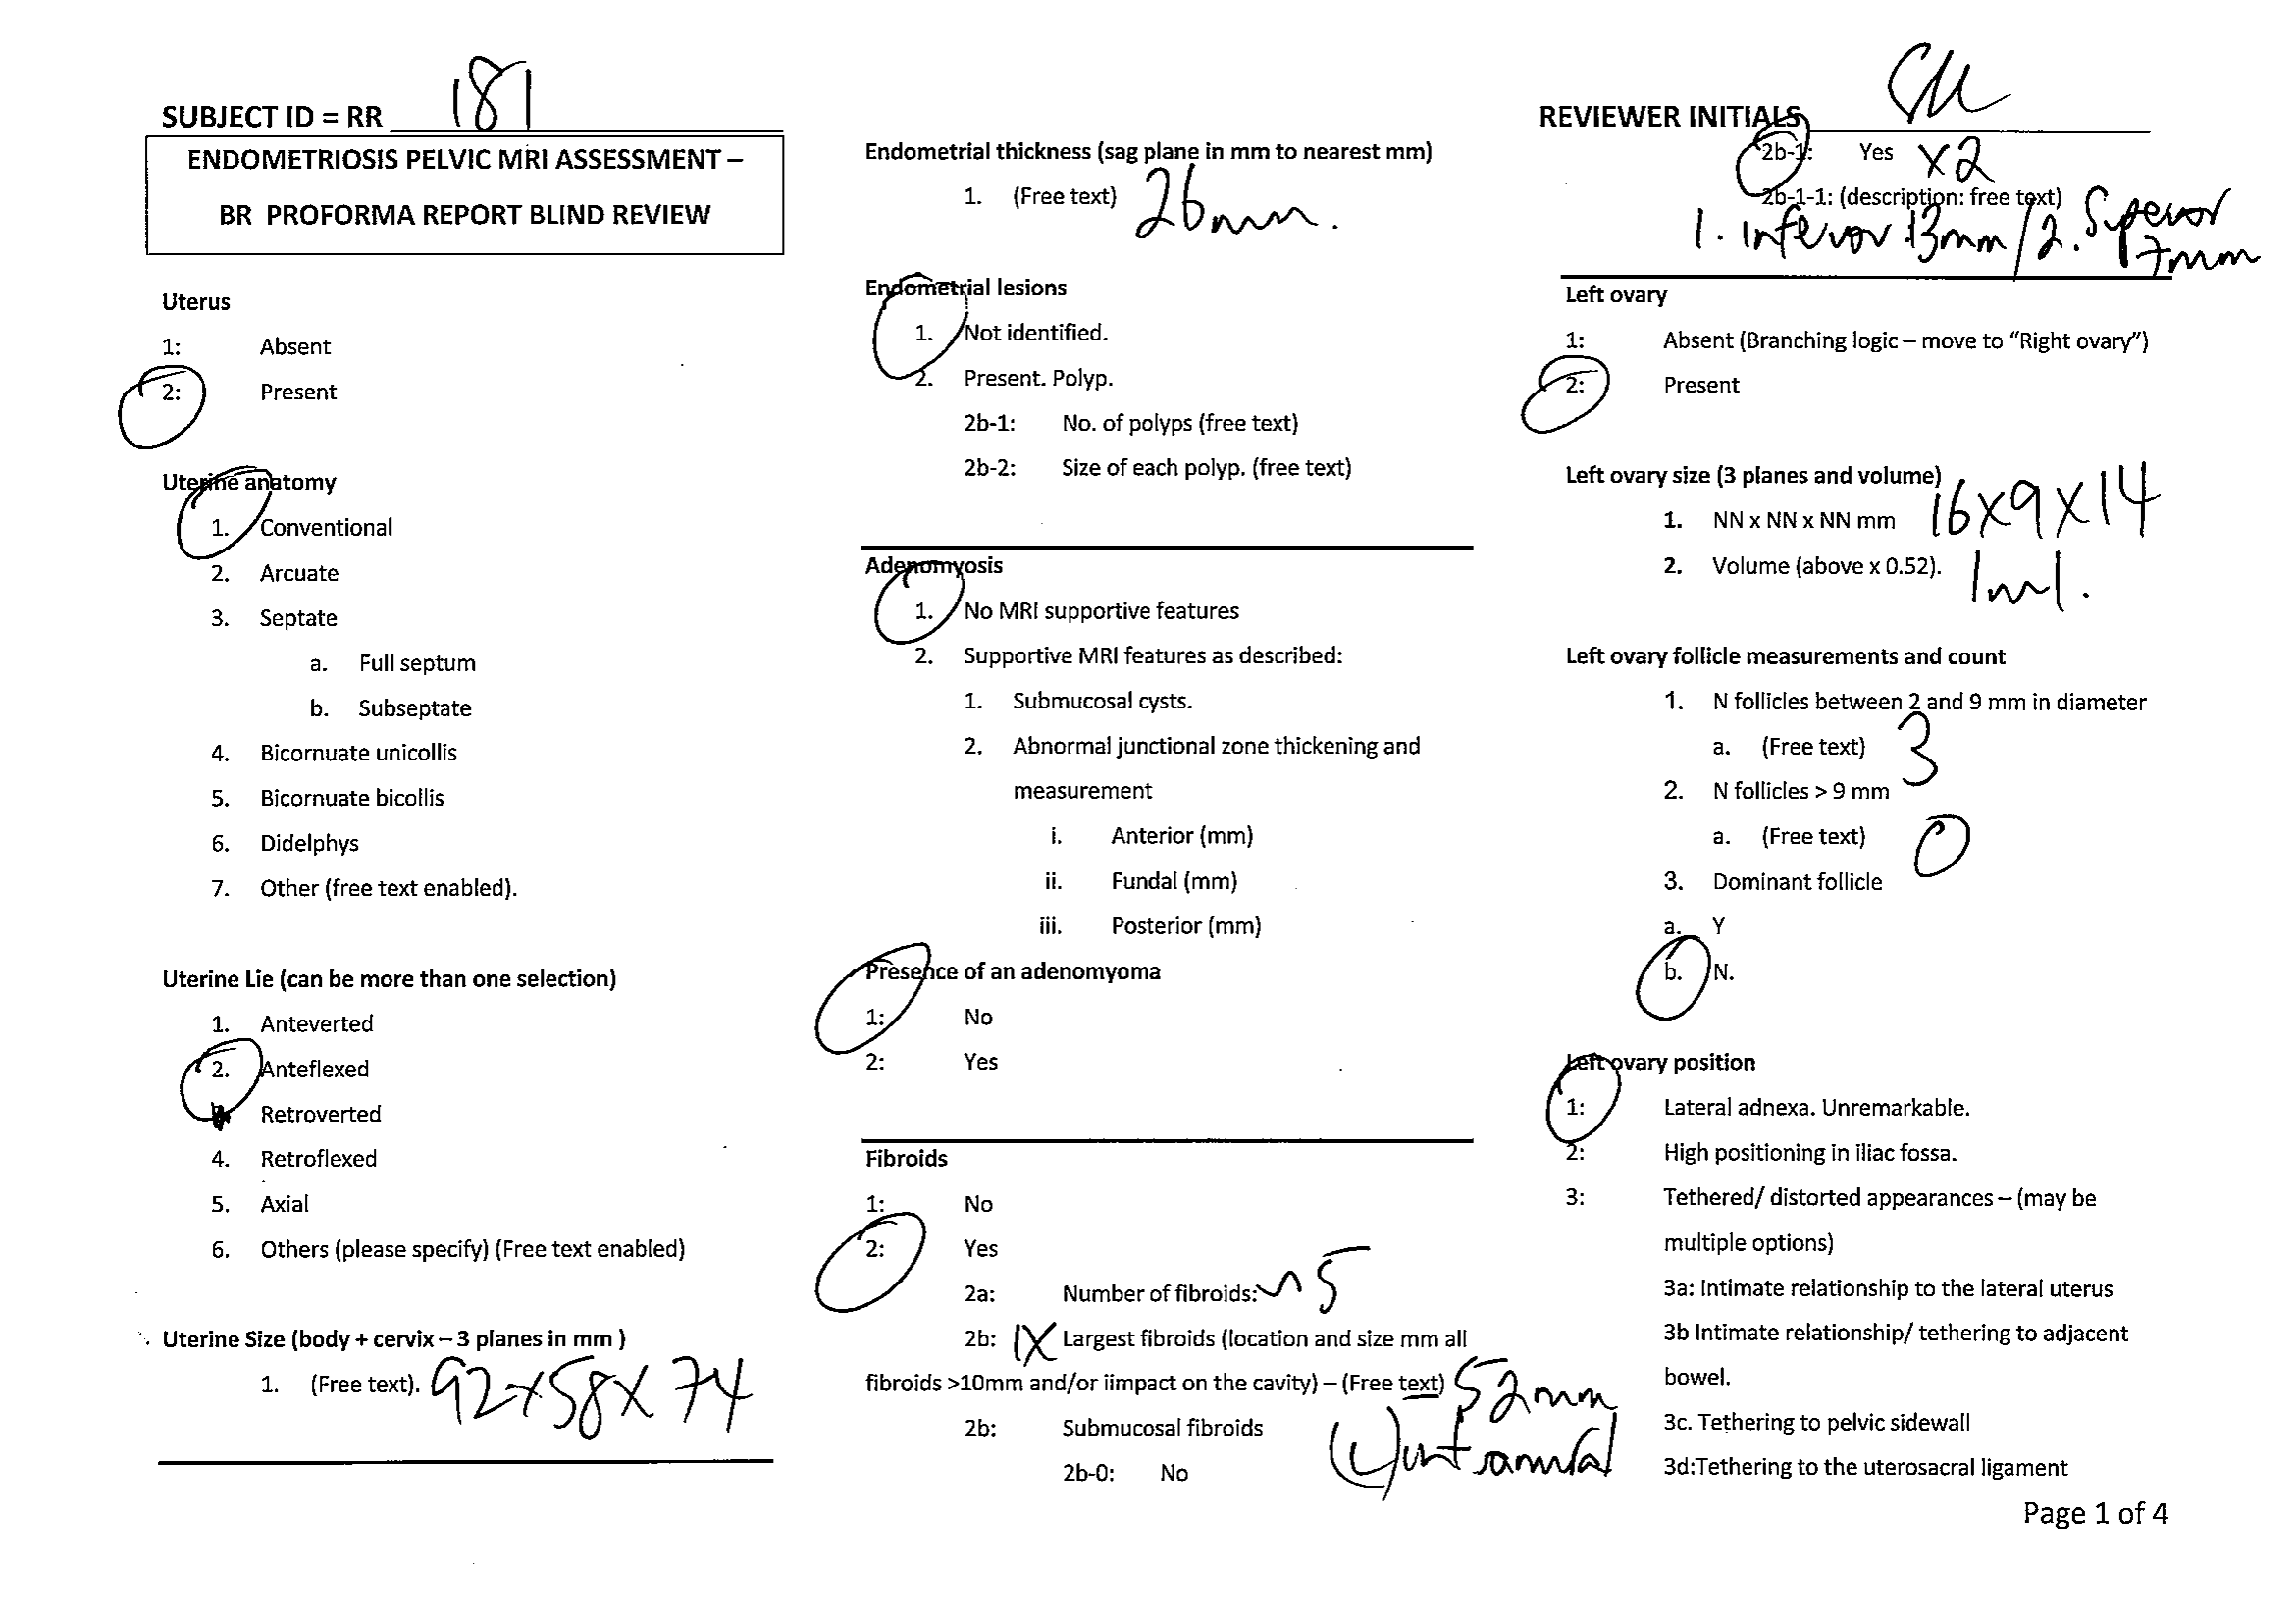 SUBJECT ID = RR 181
ENDOMETRIOSIS PELVIC MRI ASSESSMENT –
BR PROFORMA REPORT BLIND REVIEW
Uterus
1: Absent
2: Present
Uterine anatomy
1. Conventional
2. Arcuate
3. Septate
a. Full septum
b. Subseptate
4. Bicornuate unicollis
5. Bicornuate bicollis
6. Didelphys
7. Other (free text enabled).
Uterine Lie (can be more than one selection)
1. Anteverted
2. Anteflexed
Retroverted
4. Retroflexed
5. Axial
6. Others (please specify) (Free text enabled)
Uterine Size (body + cervix – 3 planes in mm )
1. (Free text). 92x58x74
Endometrial thickness (sag plane in mm to nearest mm)
1. (Free text) 26mm.
Endometrial lesions
1. Not identified.
2. Present. Polyp.
2b-1: No. of polyps (free text)
2b-2: Size of each polyp. (free text)
Adenomyosis
1. No MRI supportive features
2. Supportive MRI features as described:
1. Submucosal cysts.
2. Abnormal junctional zone thickening and
measurement
i. Anterior (mm)
ii. Fundal (mm)
iii. Posterior (mm)
Presence of an adenomyoma
1: No
2: Yes
Fibroids
1: No
2: Yes
2a: Number of fibroids: ~5
2b: 1X Largest fibroids (location and size mm all
fibroids >10mm and/or iimpact on the cavity) – (Free text) 52mm
(L) intramural
2b: Submucosal fibroids
2b-0: No
REVIEWER INITIALS
2b-1: Yes x2
2b-1-1: (description: free text)
1. Inferior 13mm / 2. Superior
17mm
Left ovary
1: Absent (Branching logic – move to “Right ovary”)
2: Present
Left ovary size (3 planes and volume)
1. NN x NN x NN mm 16x9x14
2. Volume (above x 0.52). 1ml.
Left ovary follicle measurements and count
1. N follicles between 2 and 9 mm in diameter
a. (Free text) 3
2. N follicles > 9 mm
a. (Free text) 0
3. Dominant follicle
a. Y
b. N.
Left ovary position
1: Lateral adnexa. Unremarkable.
2: High positioning in iliac fossa.
3: Tethered/ distorted appearances – (may be
multiple options)
3a: Intimate relationship to the lateral uterus
3b Intimate relationship/ tethering to adjacent
bowel.
3c. Tethering to pelvic sidewall
3d:Tethering to the uterosacral ligament
Page 1 of 4